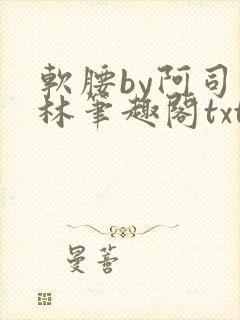 軟腰by阿司
林筆趣閣txt
曼薈